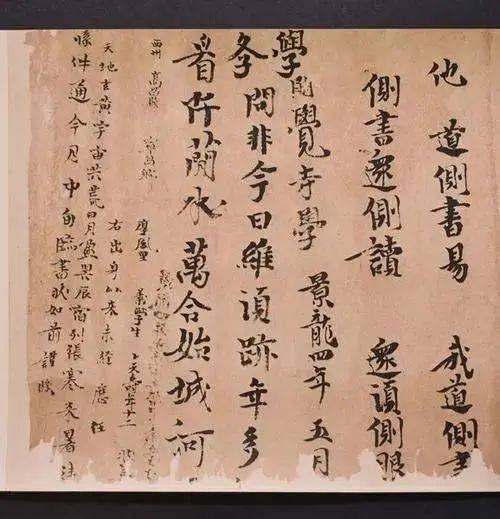 他 道側書易 我道側書
側書還側讀 還須側眼
學開覺寺學 景龍四年五月
學問非今日維須跡年多
看阡簡水萬合始城河
西州 高昌縣
厚風里 義學生 卜天壽年十二
右出身以來未經歷任
天地玄黃宇宙洪荒日月盈昃辰宿列張寒來暑
牒件通今月中旬臨書狀如前謹牒